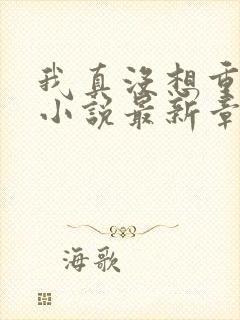 我真没想重
小说最新章
海歌